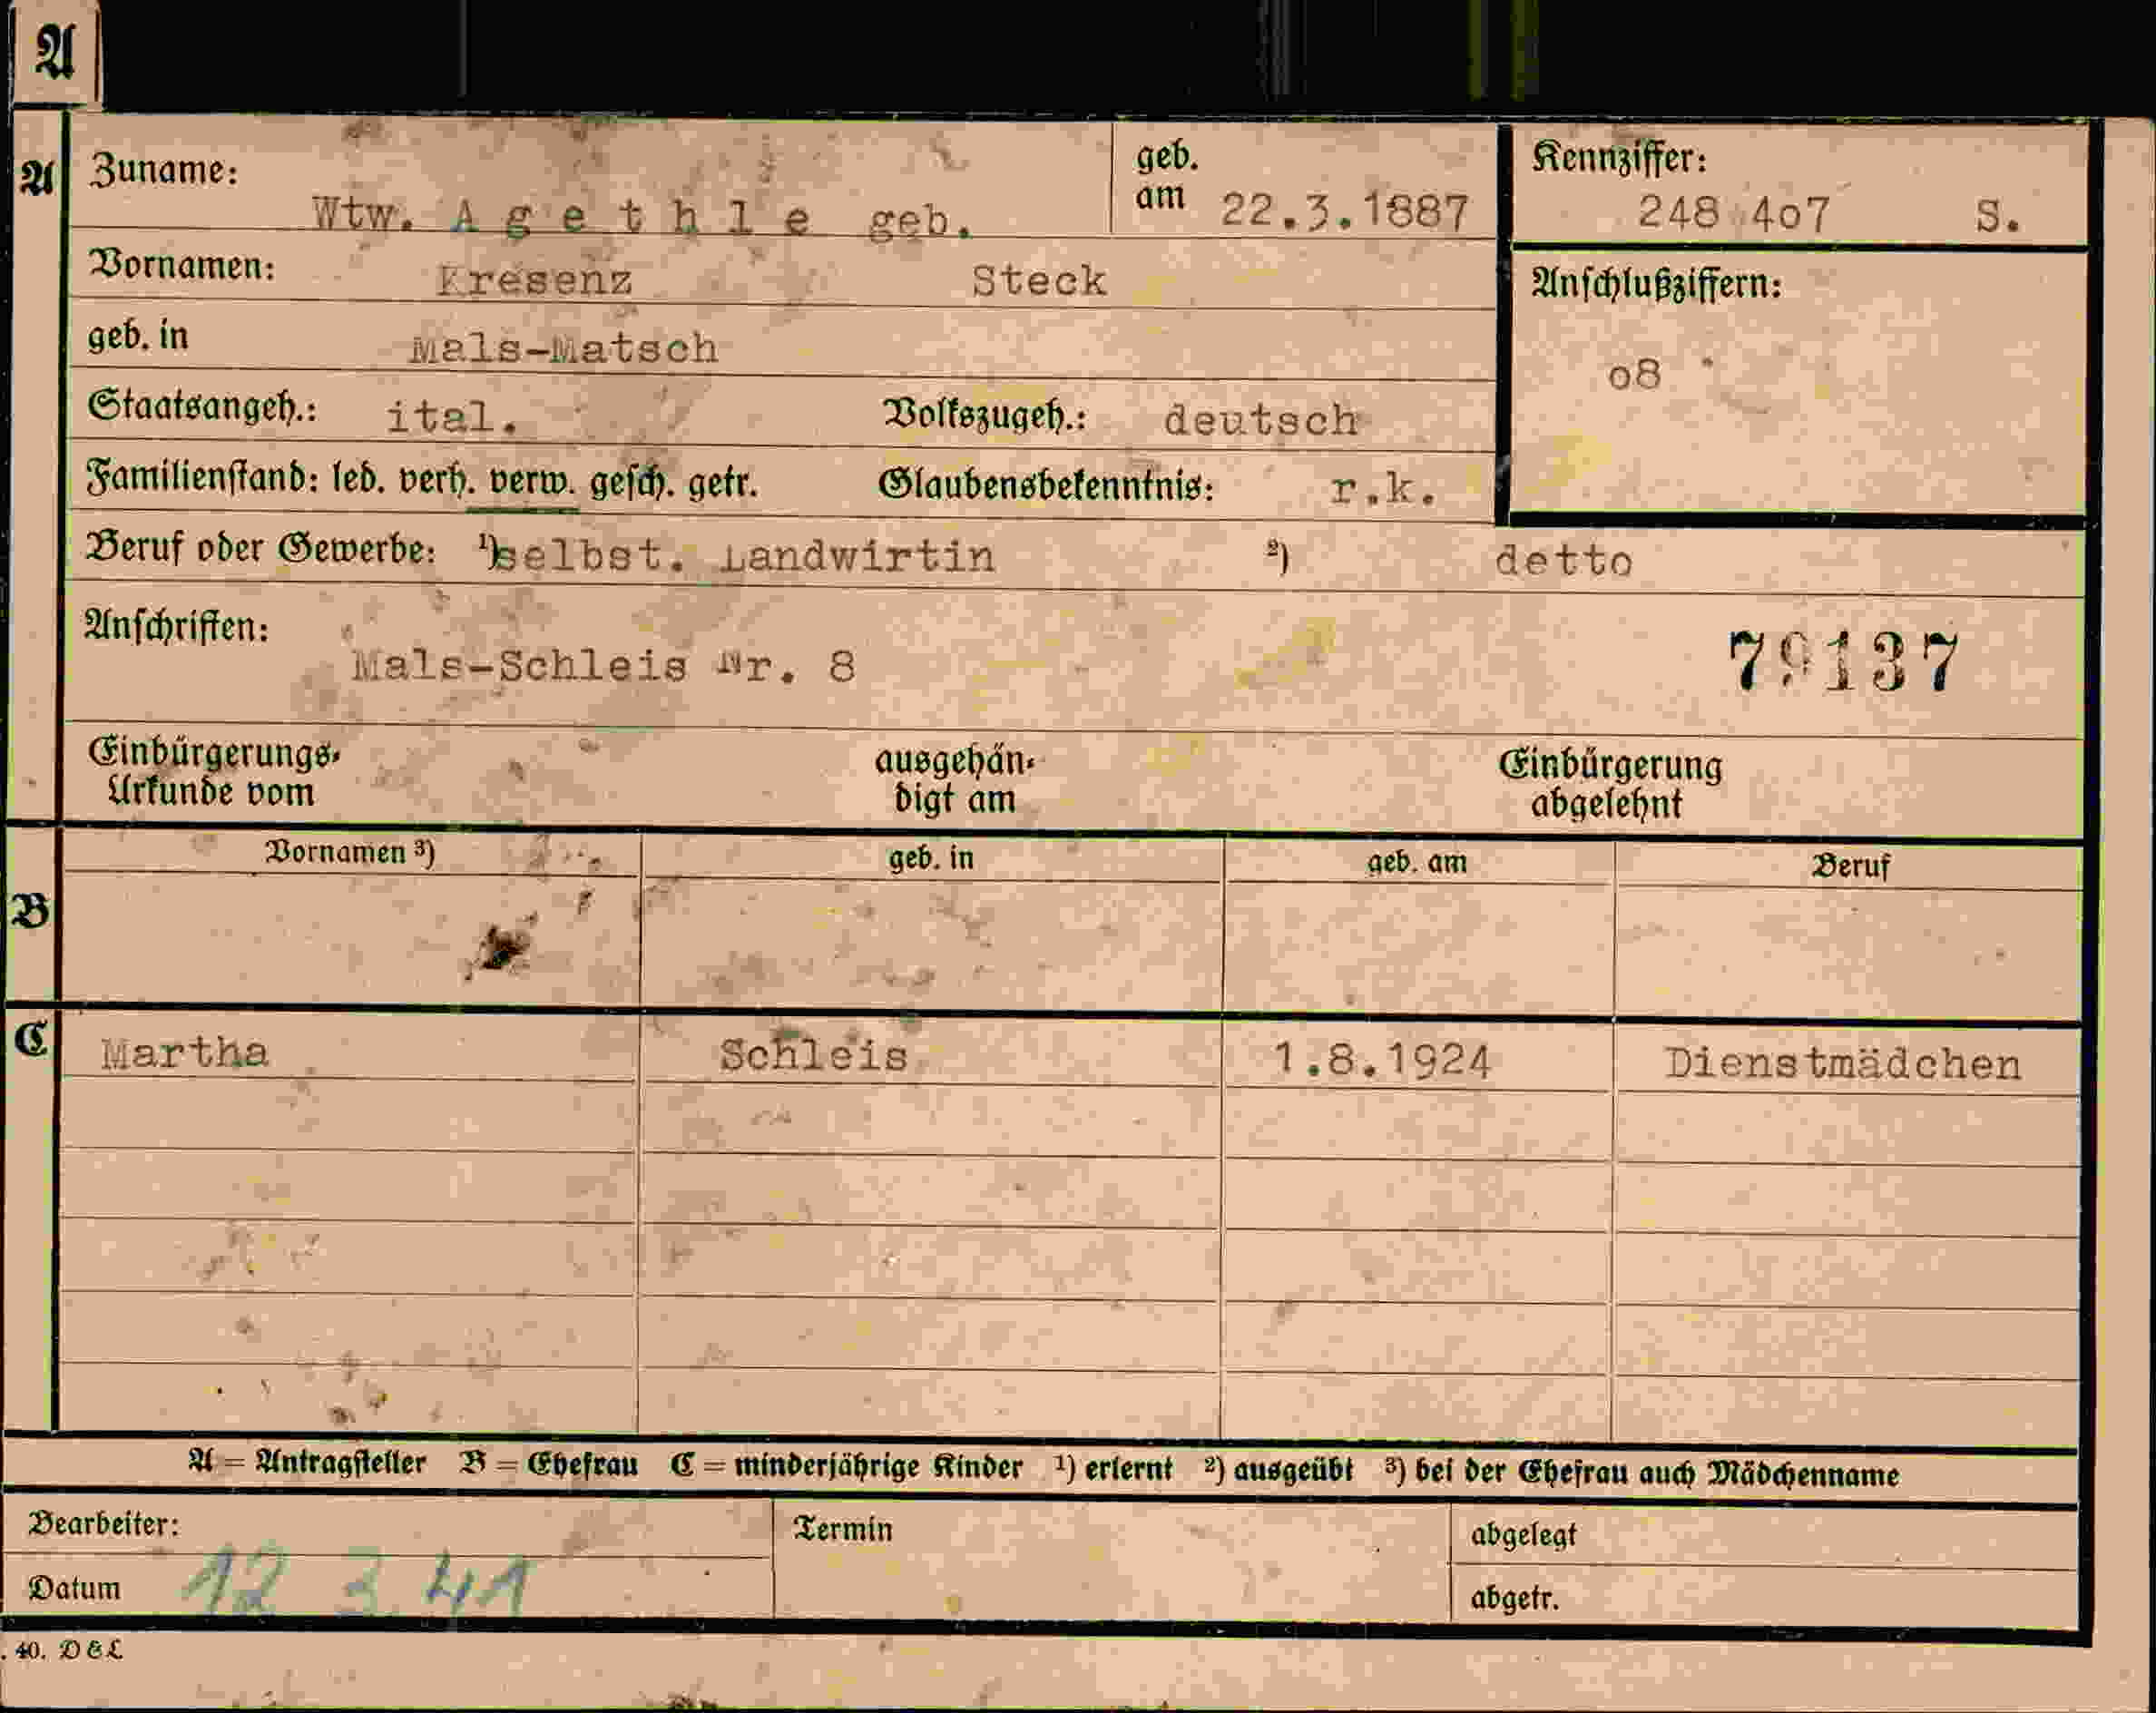 A
A Zuname: Wtw. A g e t h l e geb. geb. am 22.3.1887 Kennziffer: 248 4o7 S.
Vornamen: Kresenz Steck Anschlußziffern:
geb. in Mals-Matsch o8
Staatsangeh.: ital. Volkszugeh.: deutsch
Familienstand: led. verh. verw. gesch. getr. Glaubensbekenntnis: r.k.
Beruf oder Gewerbe: ¹)selbst. Landwirtin ²) detto
Anschriften: Mals-Schleis Nr. 8 79137
Einbürgerungs- ausgehän- Einbürgerung
Urkunde vom digt am abgelehnt
Vornamen ³) geb. in geb. am Beruf
B
C Martha Schleis 1.8.1924 Dienstmädchen
A = Antragsteller B = Ehefrau C = minderjährige Kinder ¹) erlernt ²) ausgeübt ³) bei der Ehefrau auch Mädchenname
Bearbeiter: Termin abgelegt
Datum 12 3 41 abgetr.
. 40. D & L